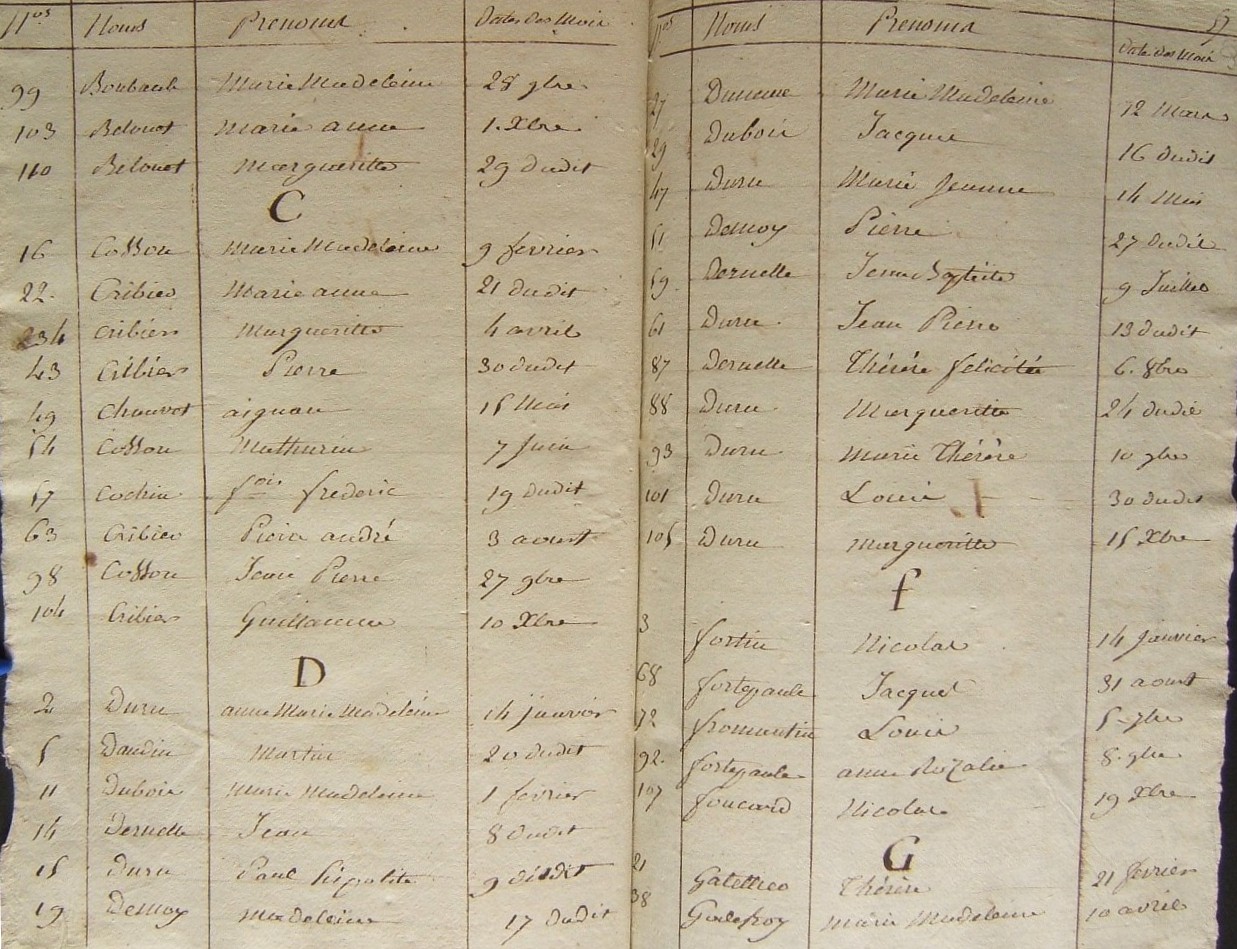 Nos Noms Prenoms Dates des Mois
99 Boubault Marie Madeleine 28 9bre
103 Belouet Marie anne 1. Xbre
110 Belouet Margueritte 29 dudit
C
16 Cosson Marie Madeleine 9 fevrier
22. Cribier Marie anne 21 dudit
34 Cribier Margueritte 4 avril
43 Cribier Pierre 30 dudit
49 Chauvot aignan 15 Mai
54 Cosson Mathurin 7 Juin
57 Cochin fois frederic 19 dudit
63 Cribier Pierre andré 3 aoust
98 Cosson Jean Pierre 27 9bre
104 Cribier Guillaume 10 Xbre
D
2 Duru anne Marie Madeleine 14 janvier
5 Daudin Martin 20 dudit
11 Dubois Marie Madeleine 1 fevrier
14 Deruelle Jean 8 dudit
15 Duru Paul hipolite 9 dudit
19 Demoy Madeleine 17 dudit
Nos Noms Prenoms Dates des Mois
27 Marie Madeleine 12 Mars
29 Dubois Jacques 16 dudit
47 Duru Marie Jeanne 14 Mai
51 Demoy Pierre 27 dudit
59. Deruelle Jean Baptiste 9 Juillet
61 Duru Jean Pierre 13 dudit
87 Deruelle Thérèse felicitée 6. 8bre
88 Duru Margueritte 24 dudit
93 Duru Marie Thérèse 10 9bre
101 Duru Louis 30 dudit
105 Duru Margueritte 15 Xbre
f
3 fortin Nicolas 14 janvier
68 fortepaule Jacques 31 aoust
72 fromentin Louis 5 7bre
92. fortepaule anne Rozalie 8. 9bre
107 foucard Nicolas 19 Xbre
G
21 Thérèse 21 fevrier
38 Godefroy marie Madeleine 10 avril